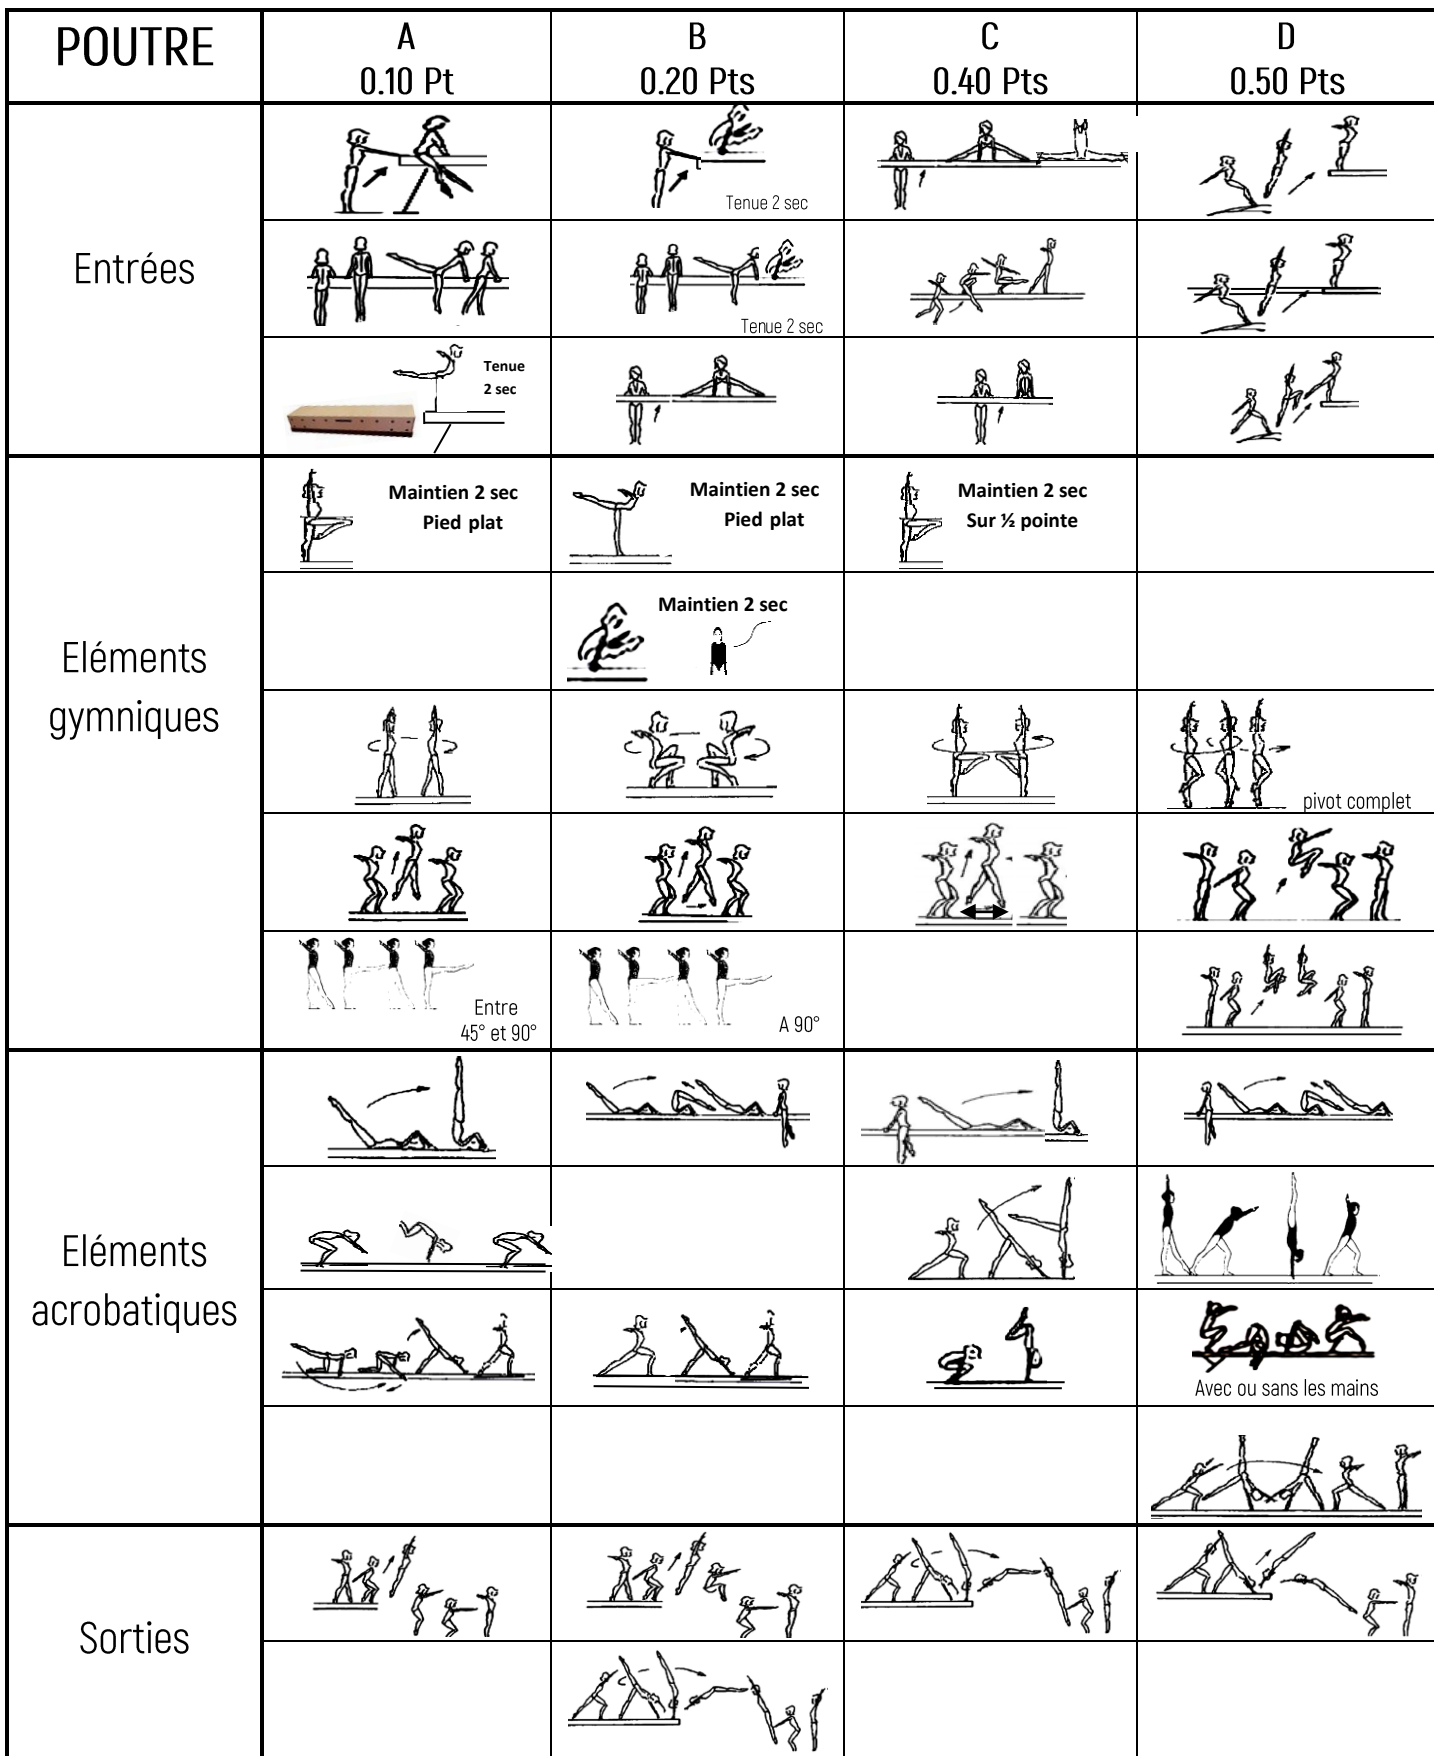 POUTRE
A
0.10 Pt
B
0.20 Pts
C
0.40 Pts
D
0.50 Pts
Entrées
Tenue 2 sec
Tenue 2 sec
Tenue
2 sec
Eléments
gymniques
Maintien 2 sec
Pied plat
Maintien 2 sec
Pied plat
Maintien 2 sec
Sur ½ pointe
Maintien 2 sec
pivot complet
Entre
45° et 90°
A 90°
Eléments
acrobatiques
Avec ou sans les mains
Sorties